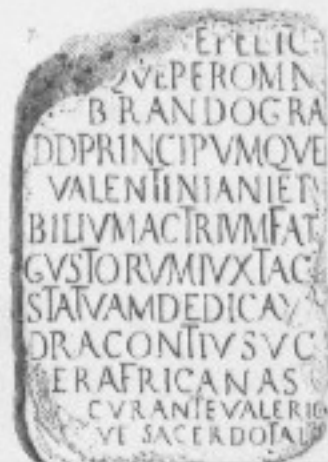 EFELIC
QVEPEROMN
BRANDOGRA
DDPRINCIPVMQVE
VALENTINIANIET
BILIVMACTRIVMFAT
GVSTORVMIVXTAC
STATVAMDEDICAV
DRACONTIVSVC
ERAFRICANAS
CVRANTEVALERIO
VE SACERDOTAL